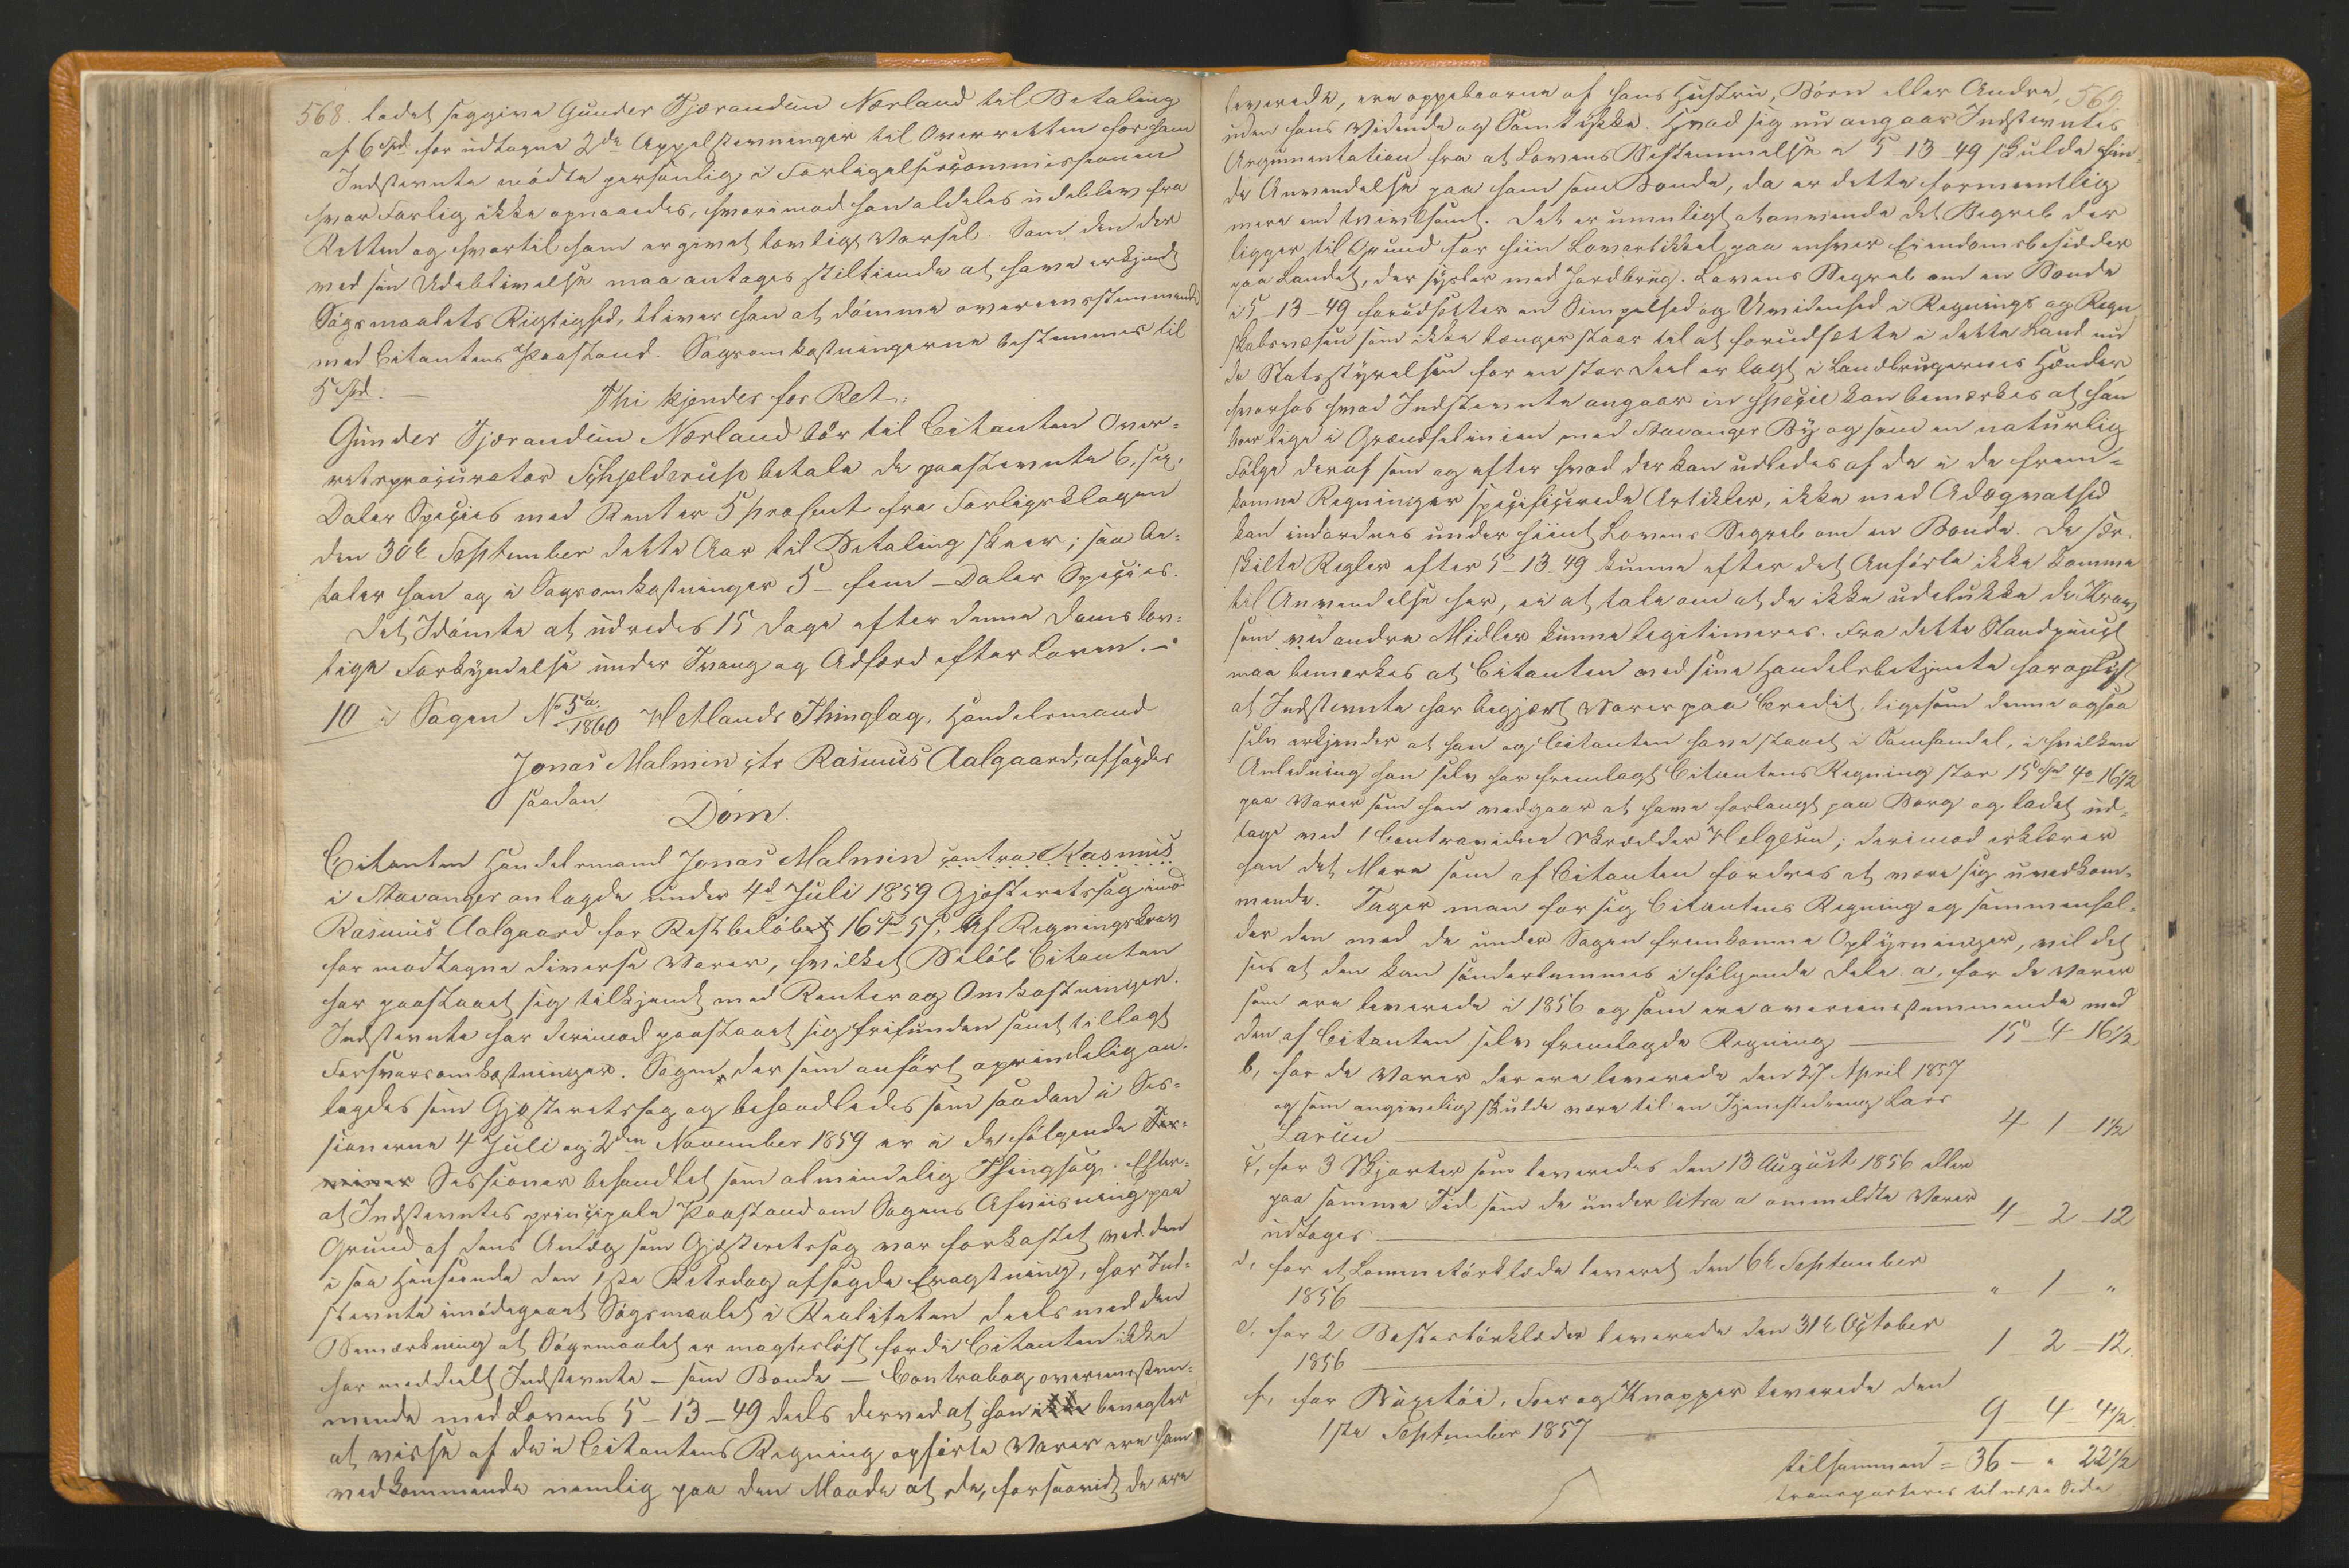 568. ladet saggive Gunder Tjærandsen Nærland til Betaling
af 6 Spd for udtagne 2de Appelstevninger til Overretten for ham
Indstevnte mødte personlig i Forligelsescommissionen
hvor Forlig ikke opnaaedes, hvorimod han aldeles udeblev fra
Retten og hvortil ham er givet lovligt Varsel. Som den der
ved sin Udeblivelse maa antages stiltiende at have erkjendt
Søgsmaalets Rigtighed, bliver han at dømme overeensstemmende
med Citantens Paastand. Sagsomkostningerne bestemmes til
5 Spd. —
Thi kjendes for Ret:
Gunder Tjærandsen Nærland bør til Citanten Over-
retsprocurator Schjelderup betale de paastevnte 6, sex,
Daler Species med Renter 5 procent fra Forligsklagen
den 30te September dette Aar til Betaling skeer; saa be-
taler han og i Sagsomkostninger 5 – fem – Daler Species.
Det Idømte at udredes 15 Dage efter denne Doms lov-
lige Forkyndelse under Tvang og Adfærd efter Loven. —
10 i Sagen No 5a/1860 Hetlands Thinglag, Handelsmand
Jonas Malmin ctr Rasmus Aalgaard, afsagdes
saadan
Dom.
Citanten Handelsmand Jonas Malmin contra Rasmus
i Stavanger anlagde under 4de Juli 1859 Gjæsteretssag imod
Rasmus Aalgaard for Restbeløbet 16 Spd 57 s, Af Regningskrav
for modtagne diverse Varer, hvilket Beløb Citanten
har paastaaet sig tilkjendt med Renter og Omkostninger.
Indstevnte har derimod paastaaet sig frifunden samt tillagt
Forsvarsomkostninger. Sagen, der som anført oprindelig an-
lagdes som Gjæsteretssag og behandledes som saadan i Ses-
sionerne 4 Juli og 2den November 1859 er i de følgende Ter-
miner Sessioner behandlet som almindelig Thingsag. Efter-
at Indstevntes principale Paastand om Sagens Afviisning paa
Grund af dens Anlæg som Gjæsteretssag var forkastet ved den
i saa Henseende den 1ste Retsdag afsagde Eragtning, har Ind-
stevnte imødegaaet Søgsmaalet i Realiteten deels med den
Bemærkning at Søgsmaalet er magtesløst fordi Citanten ikke
har meddeelt Indstevnte – som Bonde – Contrabog overeensstem-
mende med Lovens 5–13–49 deels derved at han ikke benegter
at visse af de i Citantens Regning opførte Varer ere ham
vedkommende nemlig paa den Maade at de, forsaavidt de ere
569.
leverede, ere oppebaarne af hans Hustru, Børn eller Andre,
uden hans Vidende og Samtykke. Hvad sig nu angaar Indstevntes
Argumentation fra at Lovens Bestemmelse i 5–13–49 skulde fin-
de Anvendelse paa ham som Bonde, da er dette formeentlig
mere end tvivlsomt. Det er umuligt at anvende det Begreb der
ligger til Grund for hiin Lovartikkel paa enhver Eiendomsbesidder
paa Landet, der sysler med Jordbrug. Lovens Begreb om en Bonde
i 5–13–49 forudsætter en Simpelhed og Uvidenhed i Regnings og Regn-
skabsvæsen som ikke længer staar til at forudsætte i dette Land nu
da Statsstyrelsen for en stor Deel er lagt i Landbrugernes Hænder,
hvorhos hvad Indstevnte angaar in specie kan bemærkes at han
boer lige i Grændselinien med Stavanger By og som en naturlig
Følge deraf som og efter hvad der kan udledes af de i de frem-
komne Regninger specificerede Artikler, ikke med Adæqvathed
kan indordnes under hiint Lovens Begreb om en Bonde. De sær-
skilte Regler efter 5–13–49 kunne efter det Anførte ikke komme
til Anvendelse her, ei at tale om at de ikke udelukke de Krav
som ved andre Midler kunne legitimeres. Fra dette Standpunct
maa bemærkes at Citanten ved sine Handelsbetjente har oplyst
at Indstevnte har begjært Varer paa Credit, ligesom denne ogsaa
selv erkjender at han og Citanten have staaet i Samhandel, i hvilken
Anledning han selv har fremlagt Citantens Regning stor 15 Spd 4 16 1/2
paa Varer som han vedgaar at have forlangt paa Borg og ladet ud-
tage ved / Contravidne Skrædder Helgesen; derimod erklærer
han det Mere som af Citanten fordres at være sig uvedkom-
mende. Tager man for sig Citantens Regning og sammenhol-
der den med de under Sagen fremkomne Oplysninger, vil det
sees at den kan sønderlemmes i følgende Dele: a, for de Varer
som ere leverede i 1856 og som ere overeensstemmende med
den af Citanten selv fremlagde Regning — 15 4 16 1/2
b, for de Varer der ere leverede den 27 April 1857
og som angivelig skulde være til en Tjenestedreng Lars
Larsen — 4 1 1 1/2
c, for 3 Skjorter som leveredes den 13 August 1856 eller
paa samme Tid som de under litra a ommeldte Varer
udtoges — 4 2 12
d, for et Lommetørklæde leveret den 6te September
1856 — " 1 "
e, for 2 Bastestørklæder leverede den 31te October
1856 — 1 2 12.
f, for Buxetøi, Foer og Knapper leverede den
1ste September 1857 — 9 4 4 1/2
tilsammen = 36 – " 22 1/2
transporteres til næste Side